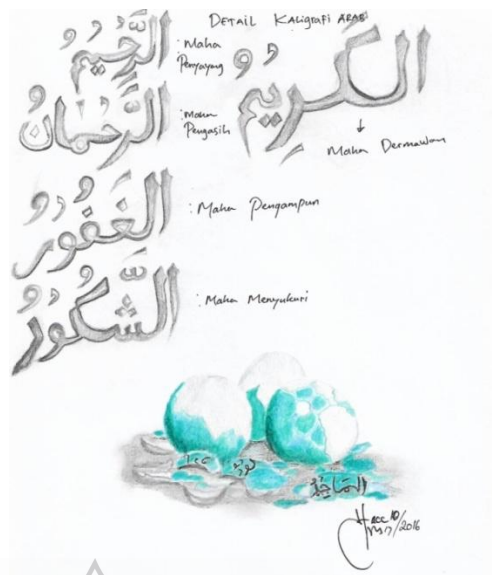 DETAIL KALIGRAFI ARAB
الرَّحِيمُ
: Maha
Penyayang
الرَّحْمَانُ
: Maha
Pengasih
الكَرِيمُ
↓
Maha Dermawan
الغَفُورُ
: Maha Pengampun
الشَّكُورُ
: Maha Mensyukuri
المَاجِدُ
ACC 10/
/2016